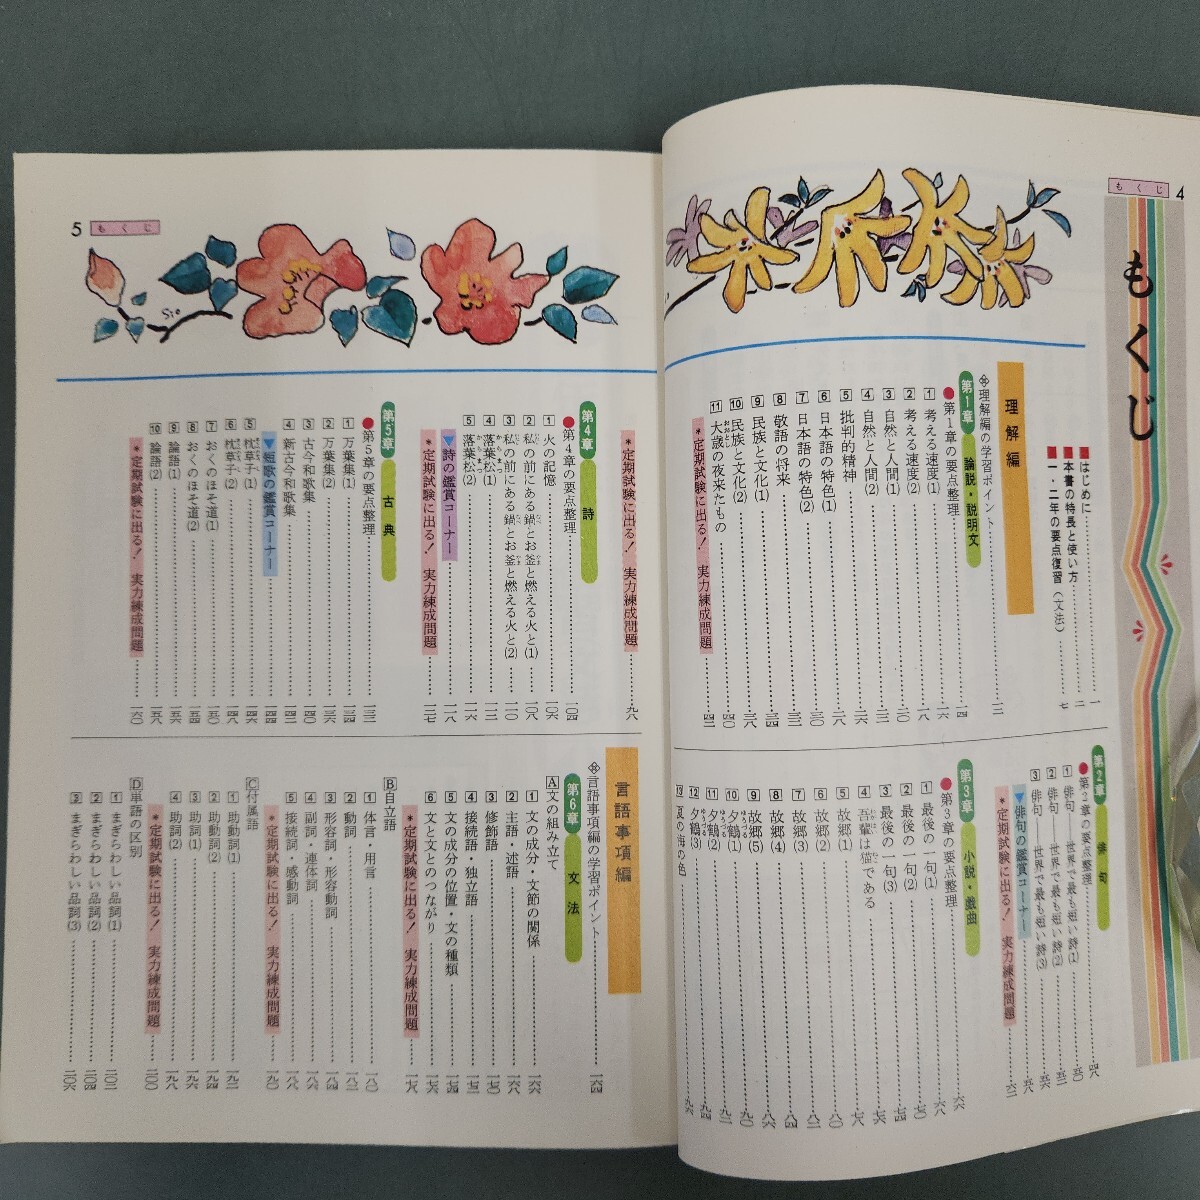 もくじ 4
もくじ
■はじめに……一
■本書の特長と使い方……二
■一・二年の要点復習(文法)……七
理解編
※理解編の学習ポイント……一二
第1章 論説・説明文
●第1章の要点整理……一四
1 考える速度(1)……一六
2 考える速度(2)……一八
3 自然と人間(1)
4 自然と人間(2)
5 批判的精神
6 日本語の特色(1)
7 日本語の特色(2)
8 敬語の将来
9 民族と文化(1)
10 民族と文化(2)……四〇
11 大歳の夜来たもの
*定期試験に出る! 実力練成問題
第2章 俳句
●第2章の要点整理……四八
1 俳句――世界で最も短い詩(1)……五〇
2 俳句――世界で最も短い詩(2)
3 俳句――世界で最も短い詩(3)
▼俳句の鑑賞コーナー
*定期試験に出る! 実力練成問題……六二
第3章 小説・戯曲
●第3章の要点整理……六六
1 最後の一句(1)……六八
2 最後の一句(2)……七四
3 最後の一句(3)……七六
4 吾輩は猫である……七八
5 故郷(1)……八〇
6 故郷(2)……八二
7 故郷(3)……八四
8 故郷(4)……八八
9 故郷(5)……九〇
10 夕鶴(1)
11 夕鶴(2)……九四
12 夕鶴(3)
13 夏の海の色……九六
5 もくじ
*定期試験に出る! 実力練成問題……九八
第4章 詩
●第4章の要点整理……一〇四
1 火の記憶……一〇六
2 私の前にある鍋とお釜と燃える火と(1)……一〇八
3 私の前にある鍋とお釜と燃える火と(2)……一一〇
4 落葉松(1)……一一二
5 落葉松(2)……一一六
▼詩の鑑賞コーナー……一一八
*定期試験に出る! 実力練成問題……一二七
第5章 古典
●第5章の要点整理……一三二
1 万葉集(1)……一三四
2 万葉集(2)……一三六
3 古今和歌集……一四〇
4 新古今和歌集……一四二
▼短歌の鑑賞コーナー……一四四
5 枕草子(1)……一四六
6 枕草子(2)……一四八
7 おくのほそ道(1)……一五〇
8 おくのほそ道(2)……一五四
9 論語(1)……一五六
10 論語(2)……一五八
*定期試験に出る! 実力練成問題……一六〇
言語事項編
※言語事項編の学習ポイント……一六四
第6章 文法
A 文の組み立て
1 文の成分・文節の関係……一六六
2 主語・述語……一六八
3 修飾語……一七〇
4 接続語・独立語……一七二
5 文の成分の位置・文の種類……一七四
6 文と文とのつながり……一七六
*定期試験に出る! 実力練成問題……一七八
B 自立語
1 体言・用言……一八〇
2 動詞……一八二
3 形容詞・形容動詞……一八四
4 副詞・連体詞……一八六
5 接続詞・感動詞……一八八
*定期試験に出る! 実力練成問題……一九〇
C 付属語
1 助動詞(1)……一九二
2 助動詞(2)……一九四
3 助詞(1)……一九六
4 助詞(2)……一九八
*定期試験に出る! 実力練成問題……二〇〇
D 単語の区別
1 まぎらわしい品詞(1)……二〇二
2 まぎらわしい品詞(2)……二〇四
3 まぎらわしい品詞(3)……二〇六